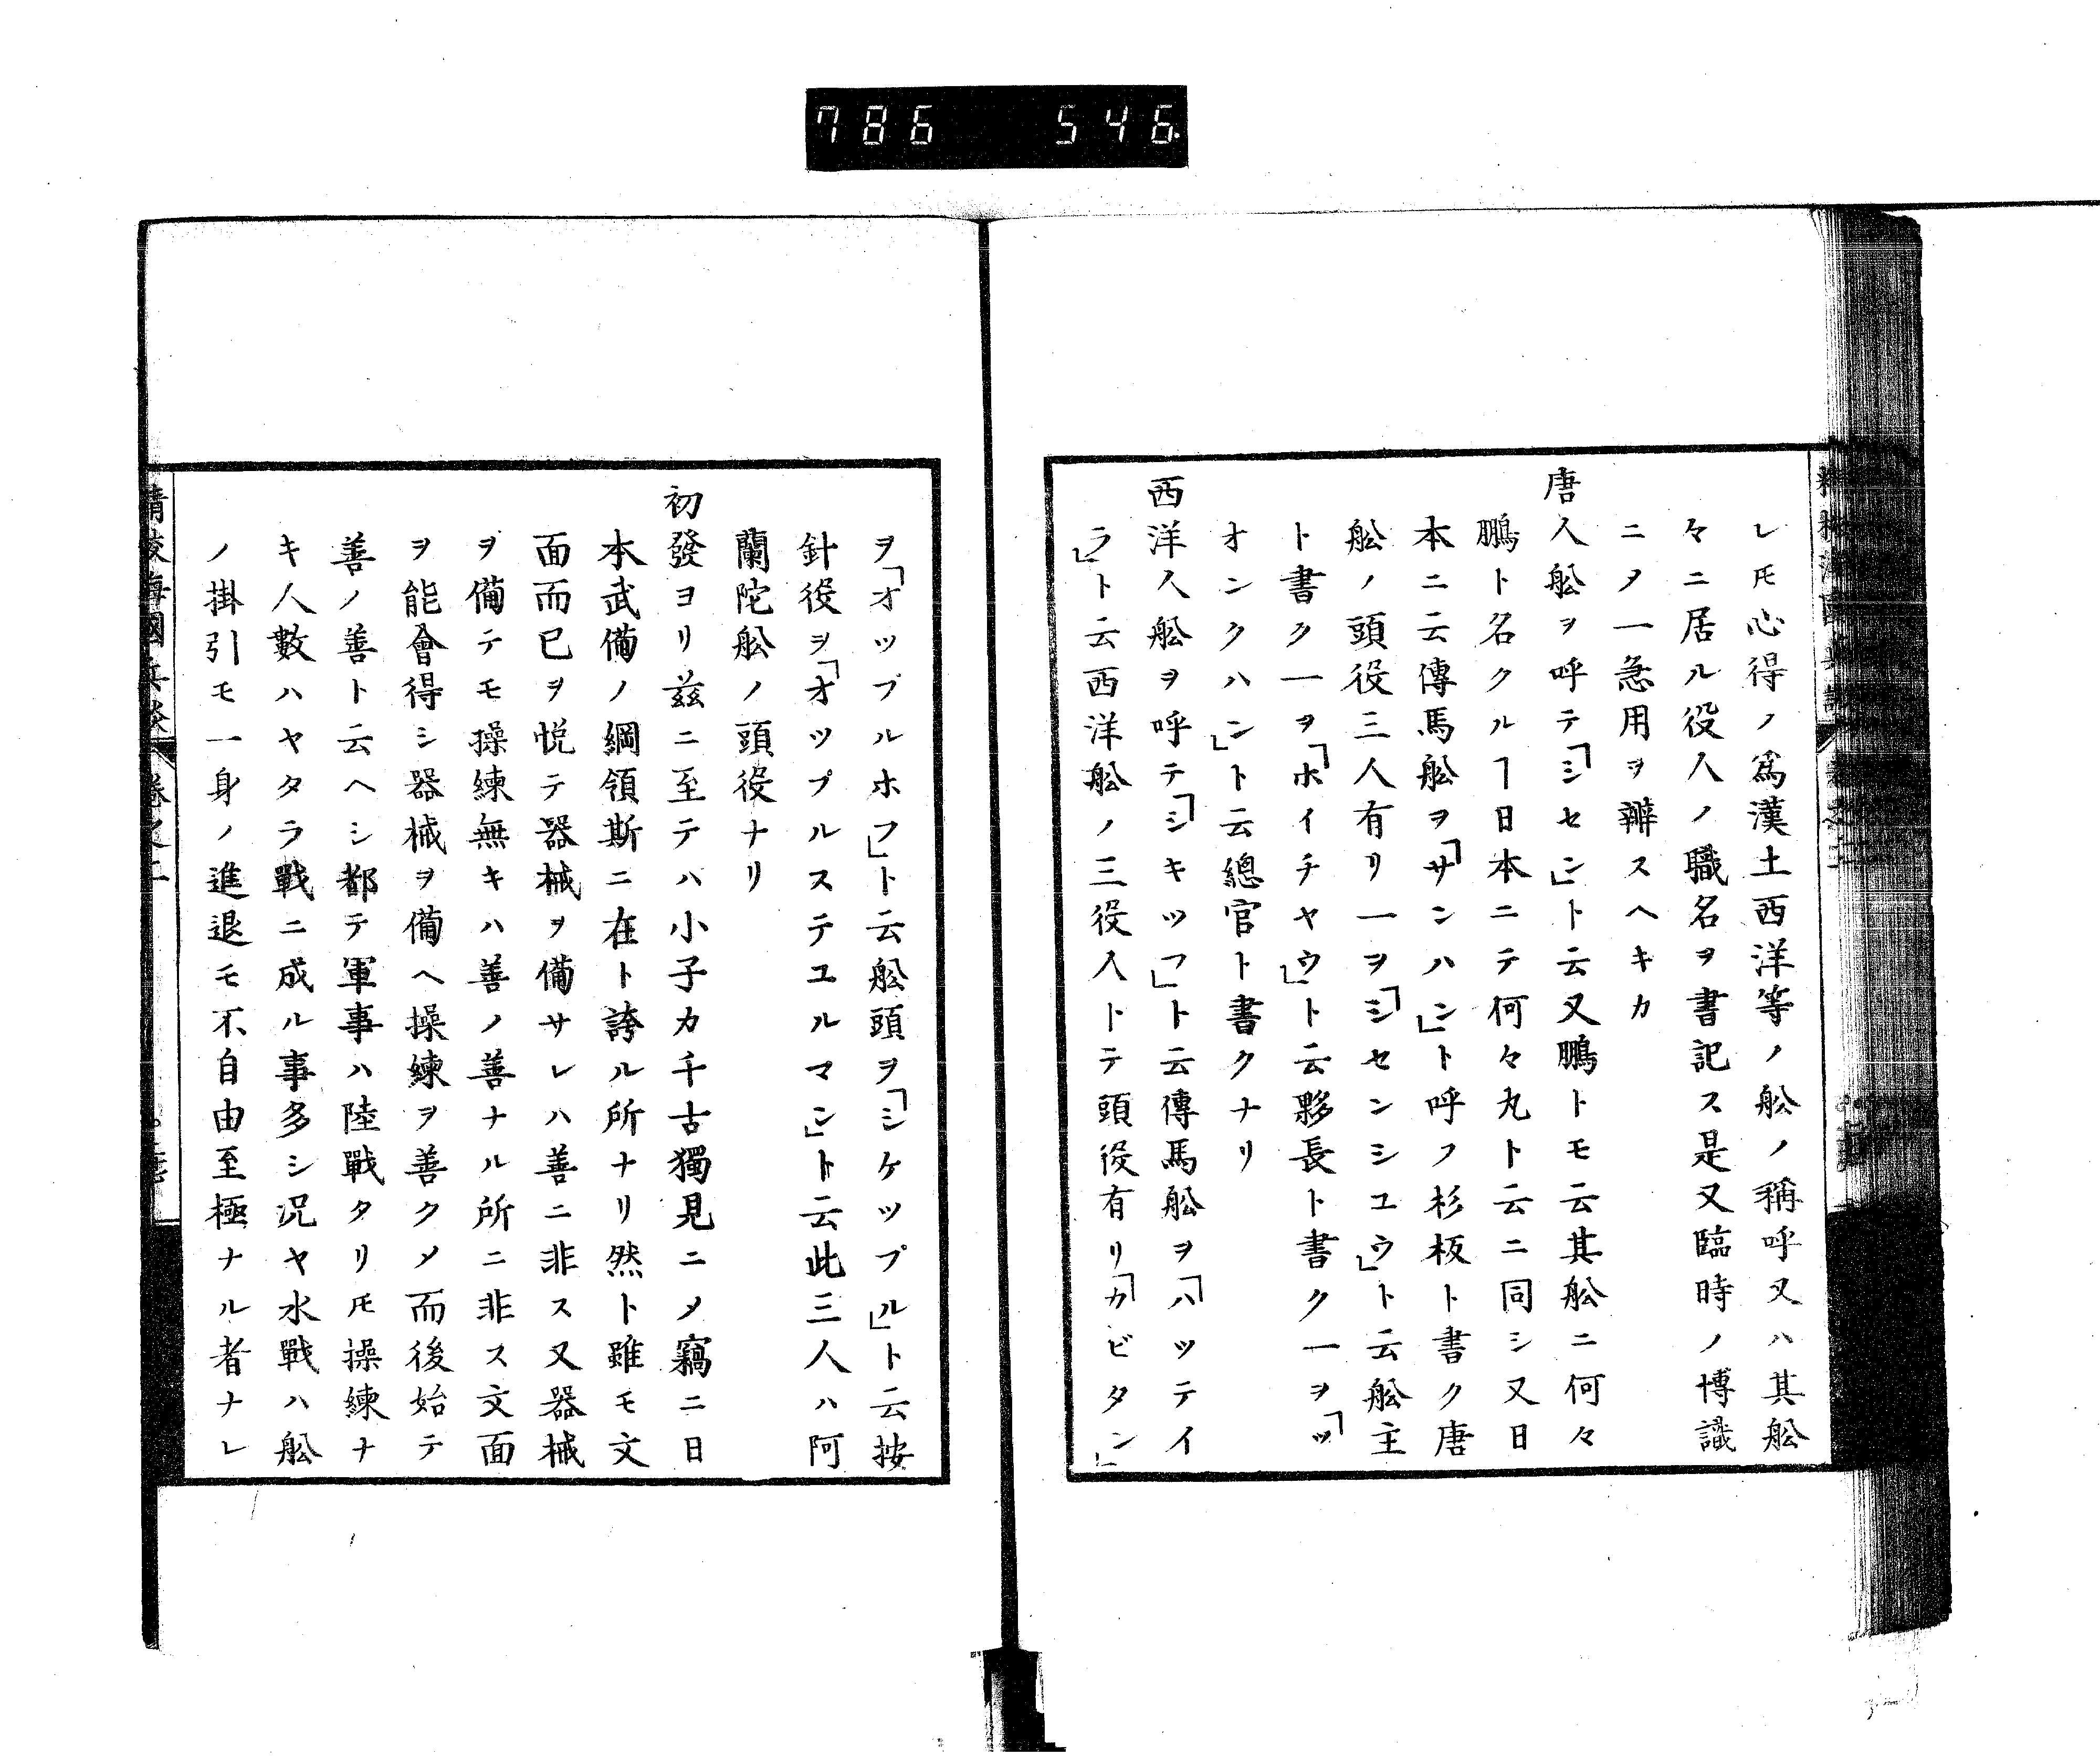 786 546
レ𪜈心得ノ爲漢土西洋等ノ舩ノ稱呼又ハ其舩
々ニ居ル役人ノ職名ヲ書記ス是又臨時ノ博識
ニ〆一急用ヲ辨スヘキカ
唐人舩ヲ呼テ「シセン」ト云又鵬トモ云其舩ニ何々
鵬ト名クルヿ日本ニテ何々丸ト云ニ同シ又日
本ニ云傳馬舩ヲ「サンハン」ト呼フ杉板ト書ク唐
舩ノ頭役三人有リ一ヲ「シセンシユウ」ト云舩主
ト書ク一ヲ「ホイチヤウ」ト云夥長ト書ク一ヲ「ツ
オンクハン」ト云總官ト書クナリ
西洋人舩ヲ呼テ「シキツフ」ト云傳馬舩ヲ「ハツテイ
ラ」ト云西洋舩ノ三役人トテ頭役有リ「カビタン」
ヲ「オツブルホフ」ト云舩頭ヲ「シケツプル」ト云按
針役ヲ「オツプルステユルマン」ト云此三人ハ阿
蘭陀舩ノ頭役ナリ
初發ヨリ茲ニ至テハ小子カ千古獨見ニ〆竊ニ日
本武備ノ綱領斯ニ在ト誇ル所ナリ然ト雖モ文
面而已ヲ悦テ器械ヲ備サレハ善ニ非ス又器械
ヲ備テモ操練無キハ善ノ善ナル所ニ非ス文面
ヲ能會得シ器械ヲ備ヘ操練ヲ善ク〆而後始テ
善ノ善ト云ヘシ都テ軍事ハ陸戰タリ𪜈操練ナ
キ人數ハヤタラ戰ニ成ル事多シ况ヤ水戰ハ舩
ノ掛引モ一身ノ進退モ不自由至極ナル者ナレ
精校海國兵談 卷之一